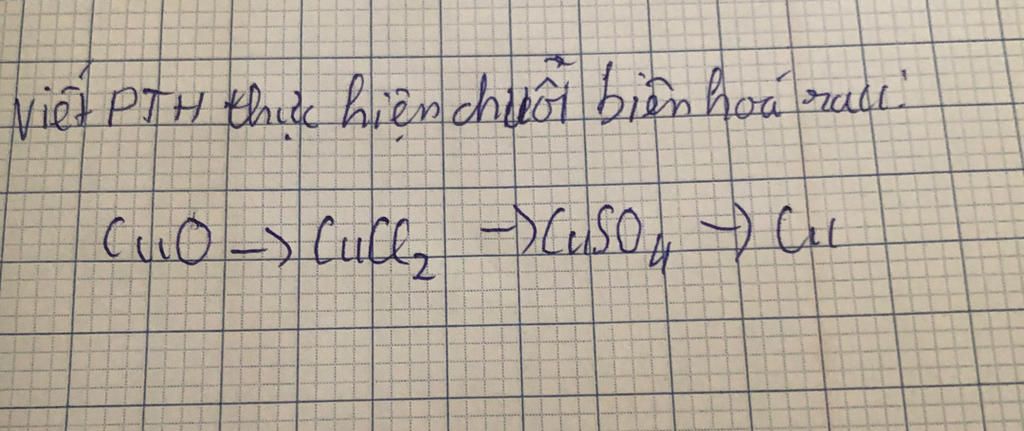 Viết PTH thực hiện chuỗi biến hoá sau:
CuO → CuCl₂ → CuSO₄ → Cu